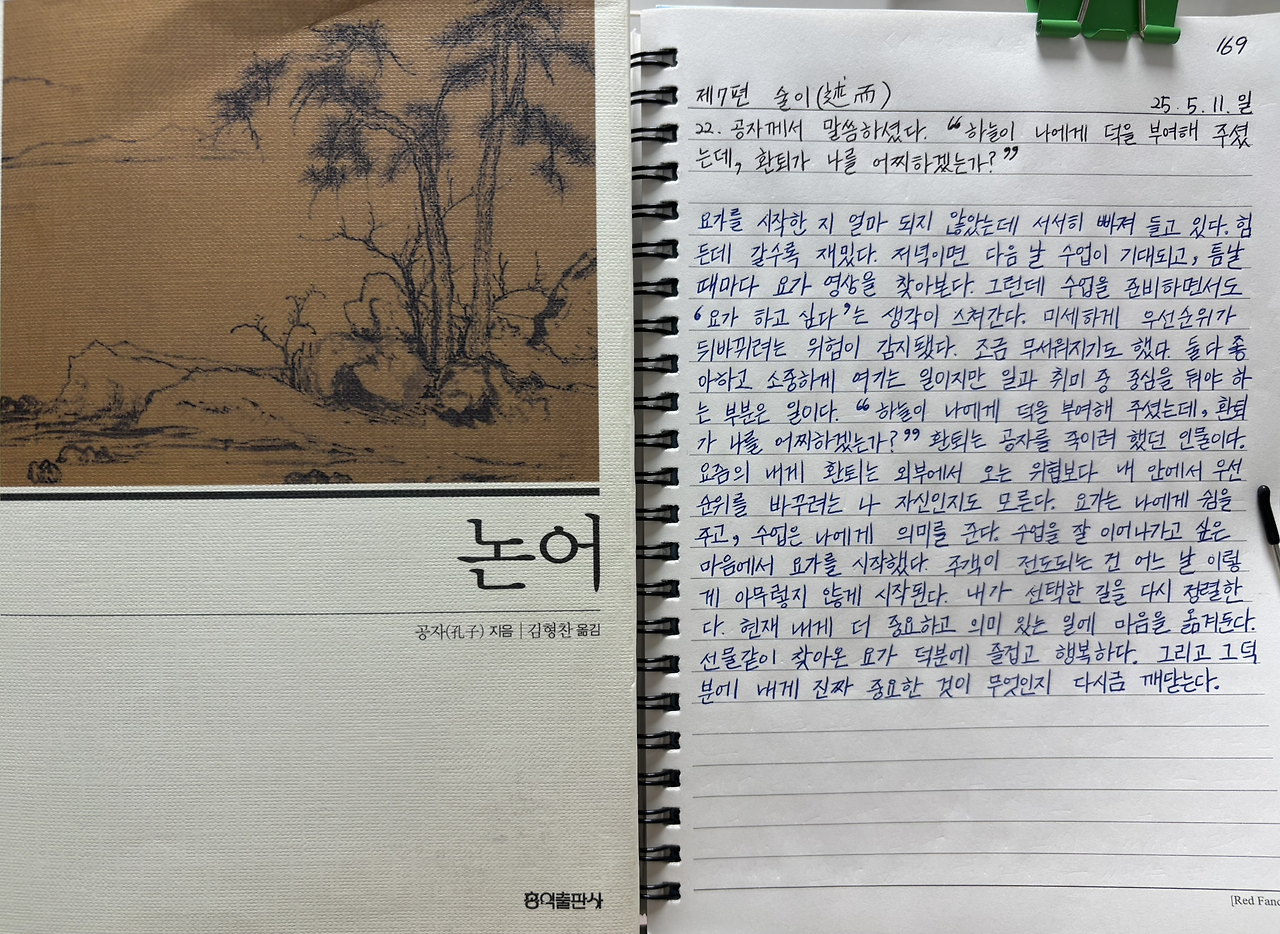 논어
공자(孔子) 지음 | 김형찬 옮김
홍익출판사
169
제7편 술이(述而)
25. 5. 11. 일
22. 공자께서 말씀하셨다. “하늘이 나에게 덕을 부여해 주셨
는데, 환퇴가 나를 어찌하겠는가?”
요가를 시작한 지 얼마 되지 않았는데 서서히 빠져 들고 있다. 힘
든데 갈수록 재밌다. 저녁이면 다음 날 수업이 기대되고, 틈날
때마다 요가 영상을 찾아본다. 그런데 수업을 준비하면서도
‘요가 하고 싶다’는 생각이 스쳐간다. 미세하게 우선순위가
뒤바뀌려는 위험이 감지됐다. 조금 무서워지기도 했다. 둘 다 좋
아하고 소중하게 여기는 일이지만 일과 취미 중 중심을 둬야 하
는 부분은 일이다. “하늘이 나에게 덕을 부여해 주셨는데, 환퇴
가 나를 어찌하겠는가?” 환퇴는 공자를 죽이려 했던 인물이다.
요즘의 내게 환퇴는 외부에서 오는 위협보다 내 안에서 우선
순위를 바꾸려는 나 자신인지도 모른다. 요가는 나에게 쉼을
주고, 수업은 나에게 의미를 준다. 수업을 잘 이어나가고 싶은
마음에서 요가를 시작했다. 주객이 전도되는 건 어느 날 이렇
게 아무렇지 않게 시작된다. 내가 선택한 길을 다시 정렬한
다. 현재 내게 더 중요하고 의미 있는 일에 마음을 옮겨둔다.
선물같이 찾아온 요가 덕분에 즐겁고 행복하다. 그리고 그 덕
분에 내게 진짜 중요한 것이 무엇인지 다시금 깨닫는다.